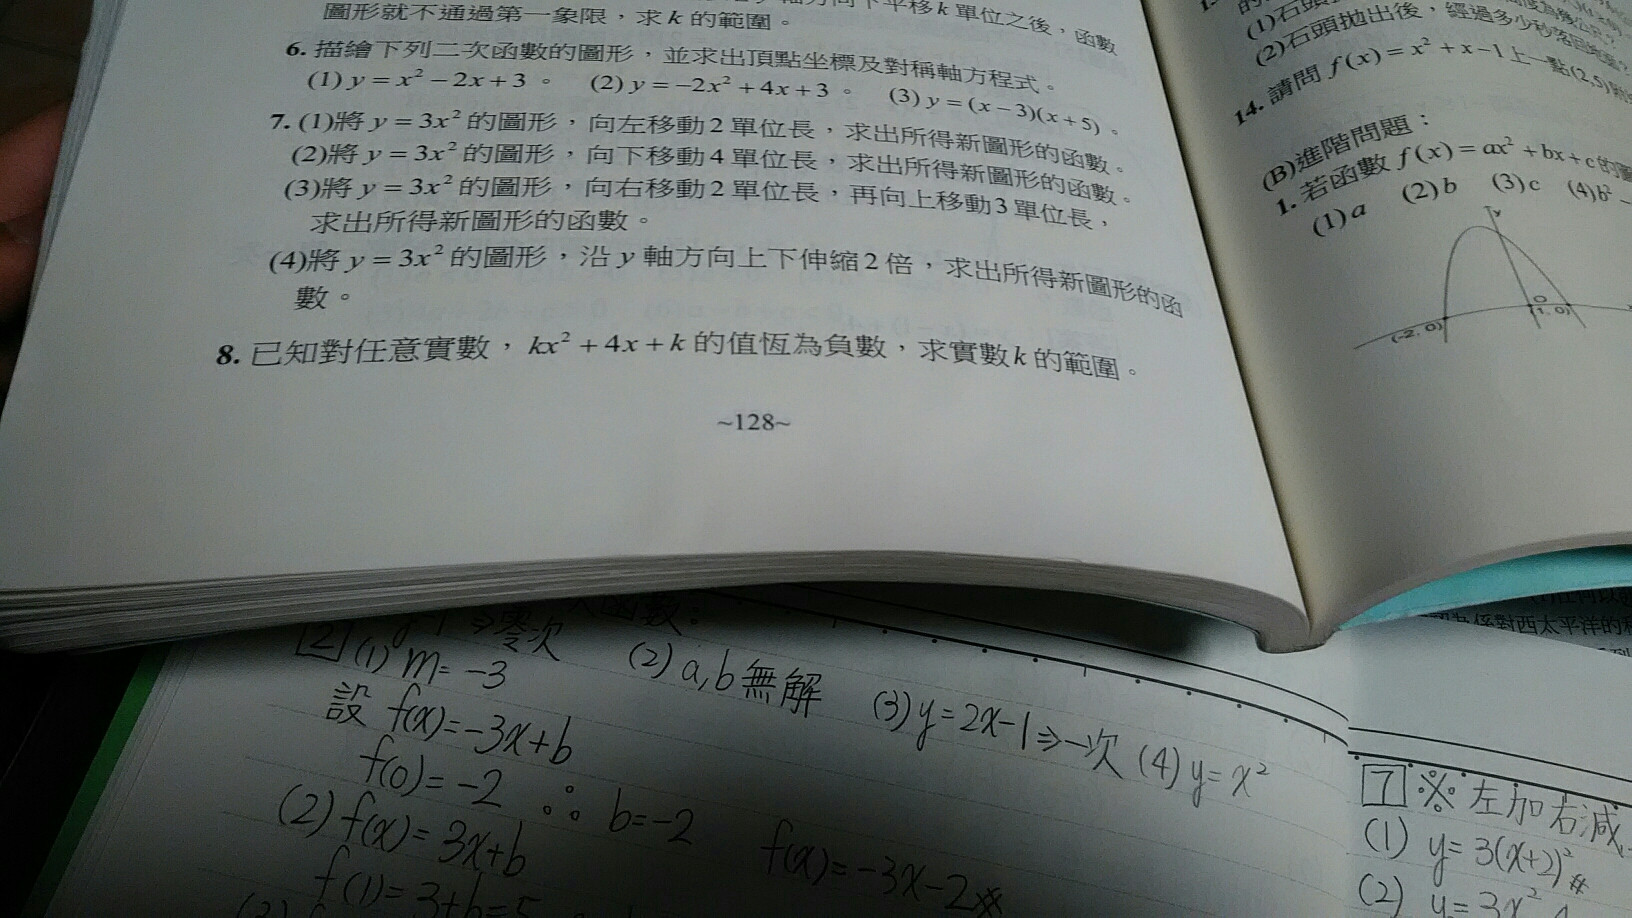 軸方向下平移k單位之後，函數
圖形就不通過第一象限，求k的範圍。
6. 描繪下列二次函數的圖形，並求出頂點坐標及對稱軸方程式。
(1) y = x² − 2x + 3 。 (2) y = −2x² + 4x + 3 。 (3) y = (x − 3)(x + 5) 。
7. (1)將 y = 3x² 的圖形，向左移動 2 單位長，求出所得新圖形的函數。
(2)將 y = 3x² 的圖形，向下移動 4 單位長，求出所得新圖形的函數。
(3)將 y = 3x² 的圖形，向右移動 2 單位長，再向上移動 3 單位長，
求出所得新圖形的函數。
(4)將 y = 3x² 的圖形，沿 y 軸方向上下伸縮 2 倍，求出所得新圖形的函
數。
8. 已知對任意實數，kx² + 4x + k 的值恆為負數，求實數 k 的範圍。
~128~
(1)石頭
(2)石頭拋出後，經過多少秒落回
14. 請問 f(x) = x² + x − 1 上一點(2,5)附
(B)進階問題：
1. 若函數 f(x) = ax² + bx + c 的圖
(1) a (2) b (3) c (4) b² −
y
O
(-2, 0)
(1, 0)
⇒零次
函數：
2 (1) m = -3
(2) a,b 無解
(3) y = 2x-1 ⇒ 一次
(4) y = x²
設 f(x) = -3x+b
f(0) = -2 ∴ b = -2
f(x) = -3x-2
(2) f(x) = 3x+b
f(1) = 3+b = 5
係對西太平洋的
7 ※ 左加右減
(1) y = 3(x+2)²
(2) y = 3x²